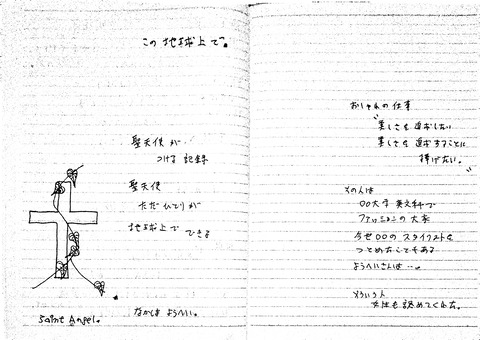 この地球上で。
聖天使が
つける記録
聖天使
ただひとりが
地球上でできる
Saint Angel.
なかは ようへい。
おしゃれの仕事
"美しさを追求しない
美しさを追求することに
捧げたい。"
その人は
○○大学 英文科で
ファッションの大家
今も○○の スタイリストを
つとめたこともある
ようへいさんは…。
そういう人
女性も認めてくれた。